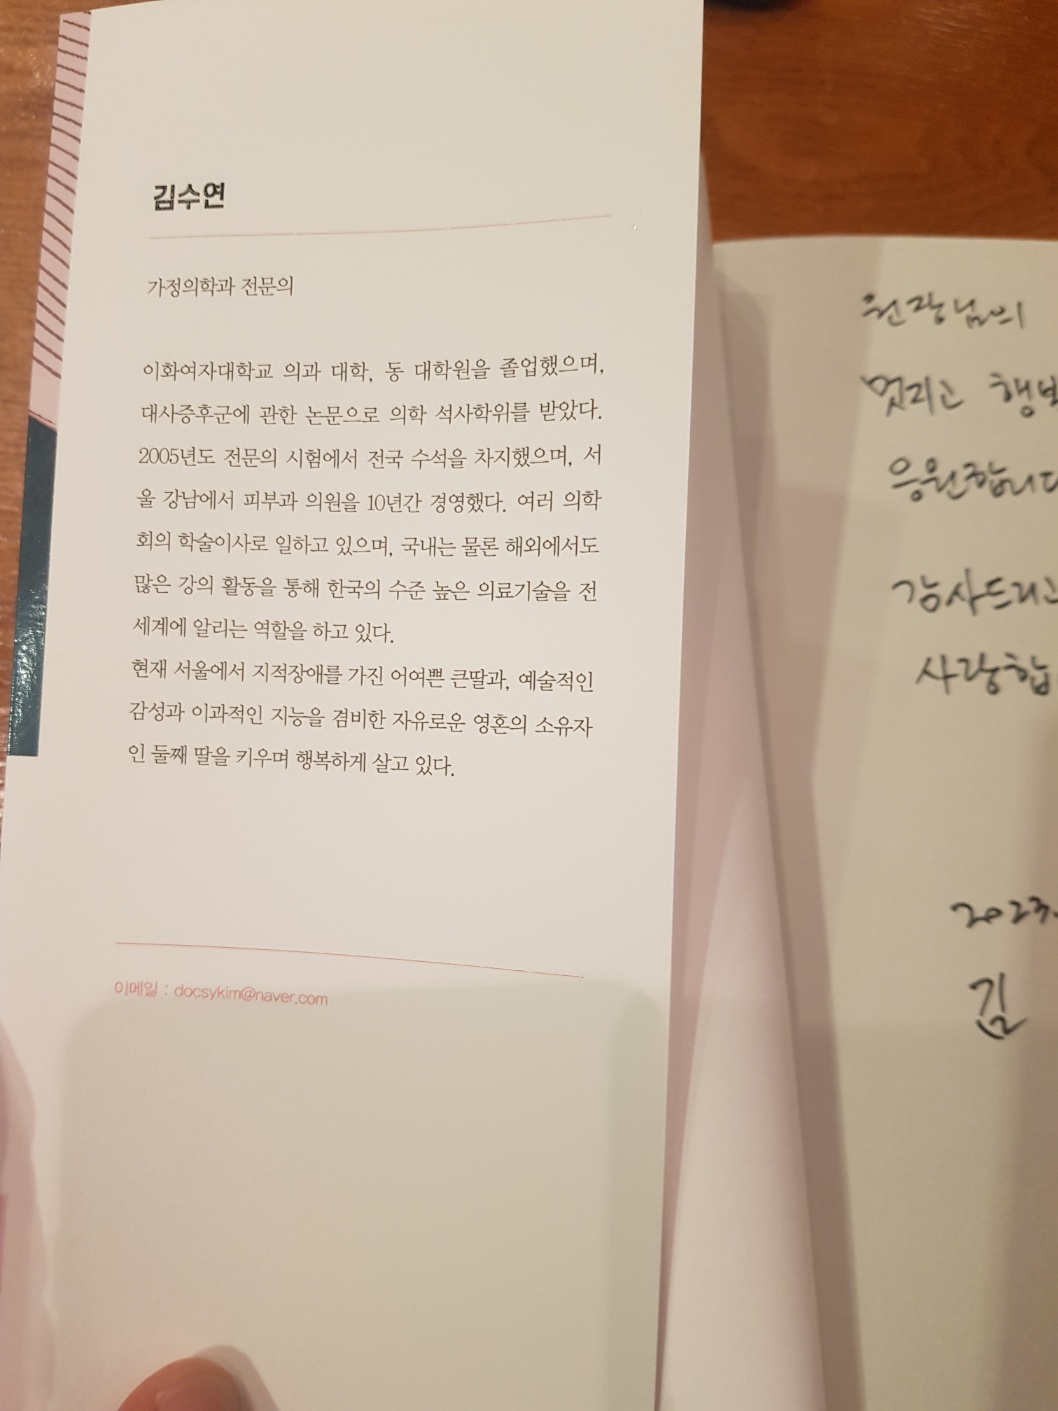 김수연
가정의학과 전문의
이화여자대학교 의과 대학, 동 대학원을 졸업했으며,
대사증후군에 관한 논문으로 의학 석사학위를 받았다.
2005년도 전문의 시험에서 전국 수석을 차지했으며, 서
울 강남에서 피부과 의원을 10년간 경영했다. 여러 의학
회의 학술이사로 일하고 있으며, 국내는 물론 해외에서도
많은 강의 활동을 통해 한국의 수준 높은 의료기술을 전
세계에 알리는 역할을 하고 있다.
현재 서울에서 지적장애를 가진 어여쁜 큰딸과, 예술적인
감성과 이과적인 지능을 겸비한 자유로운 영혼의 소유자
인 둘째 딸을 키우며 행복하게 살고 있다.
이메일 : docsykim@naver.com
원장님의
멋지고 행보
응원합니다
감사드리고
사랑합
2023.
김